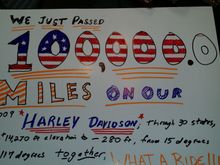 WE JUST PASSED
100,000.0
MILES ON OUR
009
"HARLEY DAVIDSON" Through 30 states,
14,270 ft elevation to - 280 ft, from 15 degrees
117 degrees together, WHAT A RIDE